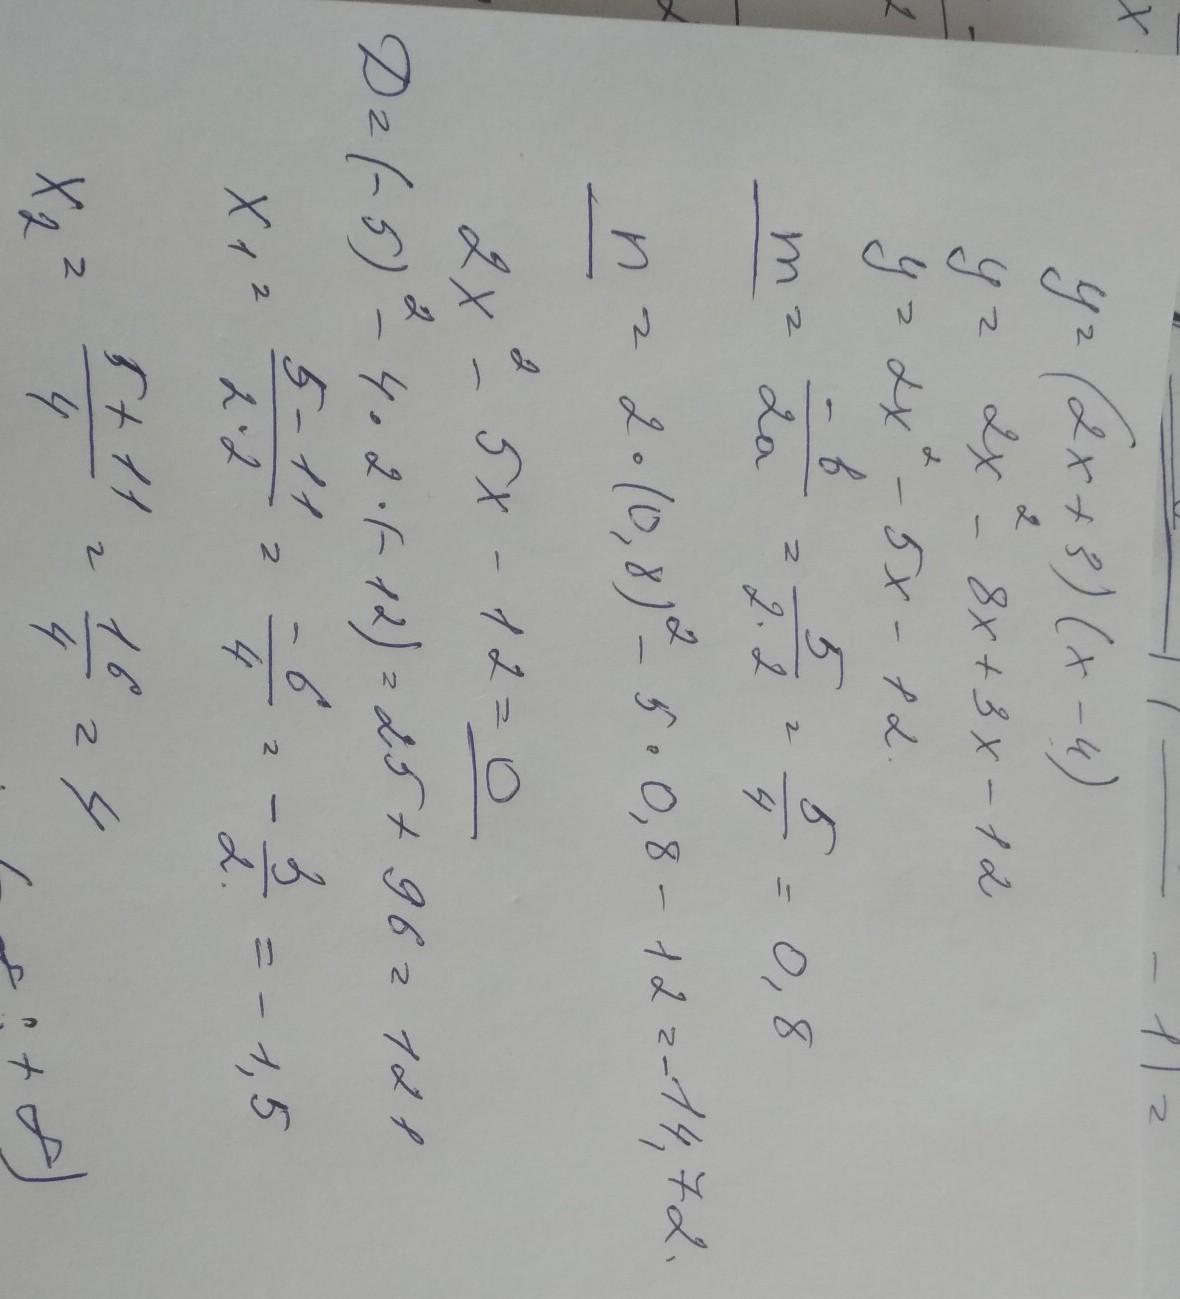 - 1) =
y = (2x+3)(x-4)
y = 2x² - 8x + 3x - 12
y = 2x² - 5x - 12.
m = -b/2a = 5/2·2 = 5/4 = 0,8
n = 2·(0,8)² - 5·0,8 - 12 = -14,72.
2x² - 5x - 12 = 0
D = (-5)² - 4·2·(-12) = 25 + 96 = 121
x₁ = 5-11/2·2 = -6/4 = -3/2 = -1,5
x₂ = 5+11/4 = 16/4 = 4
; +∞)